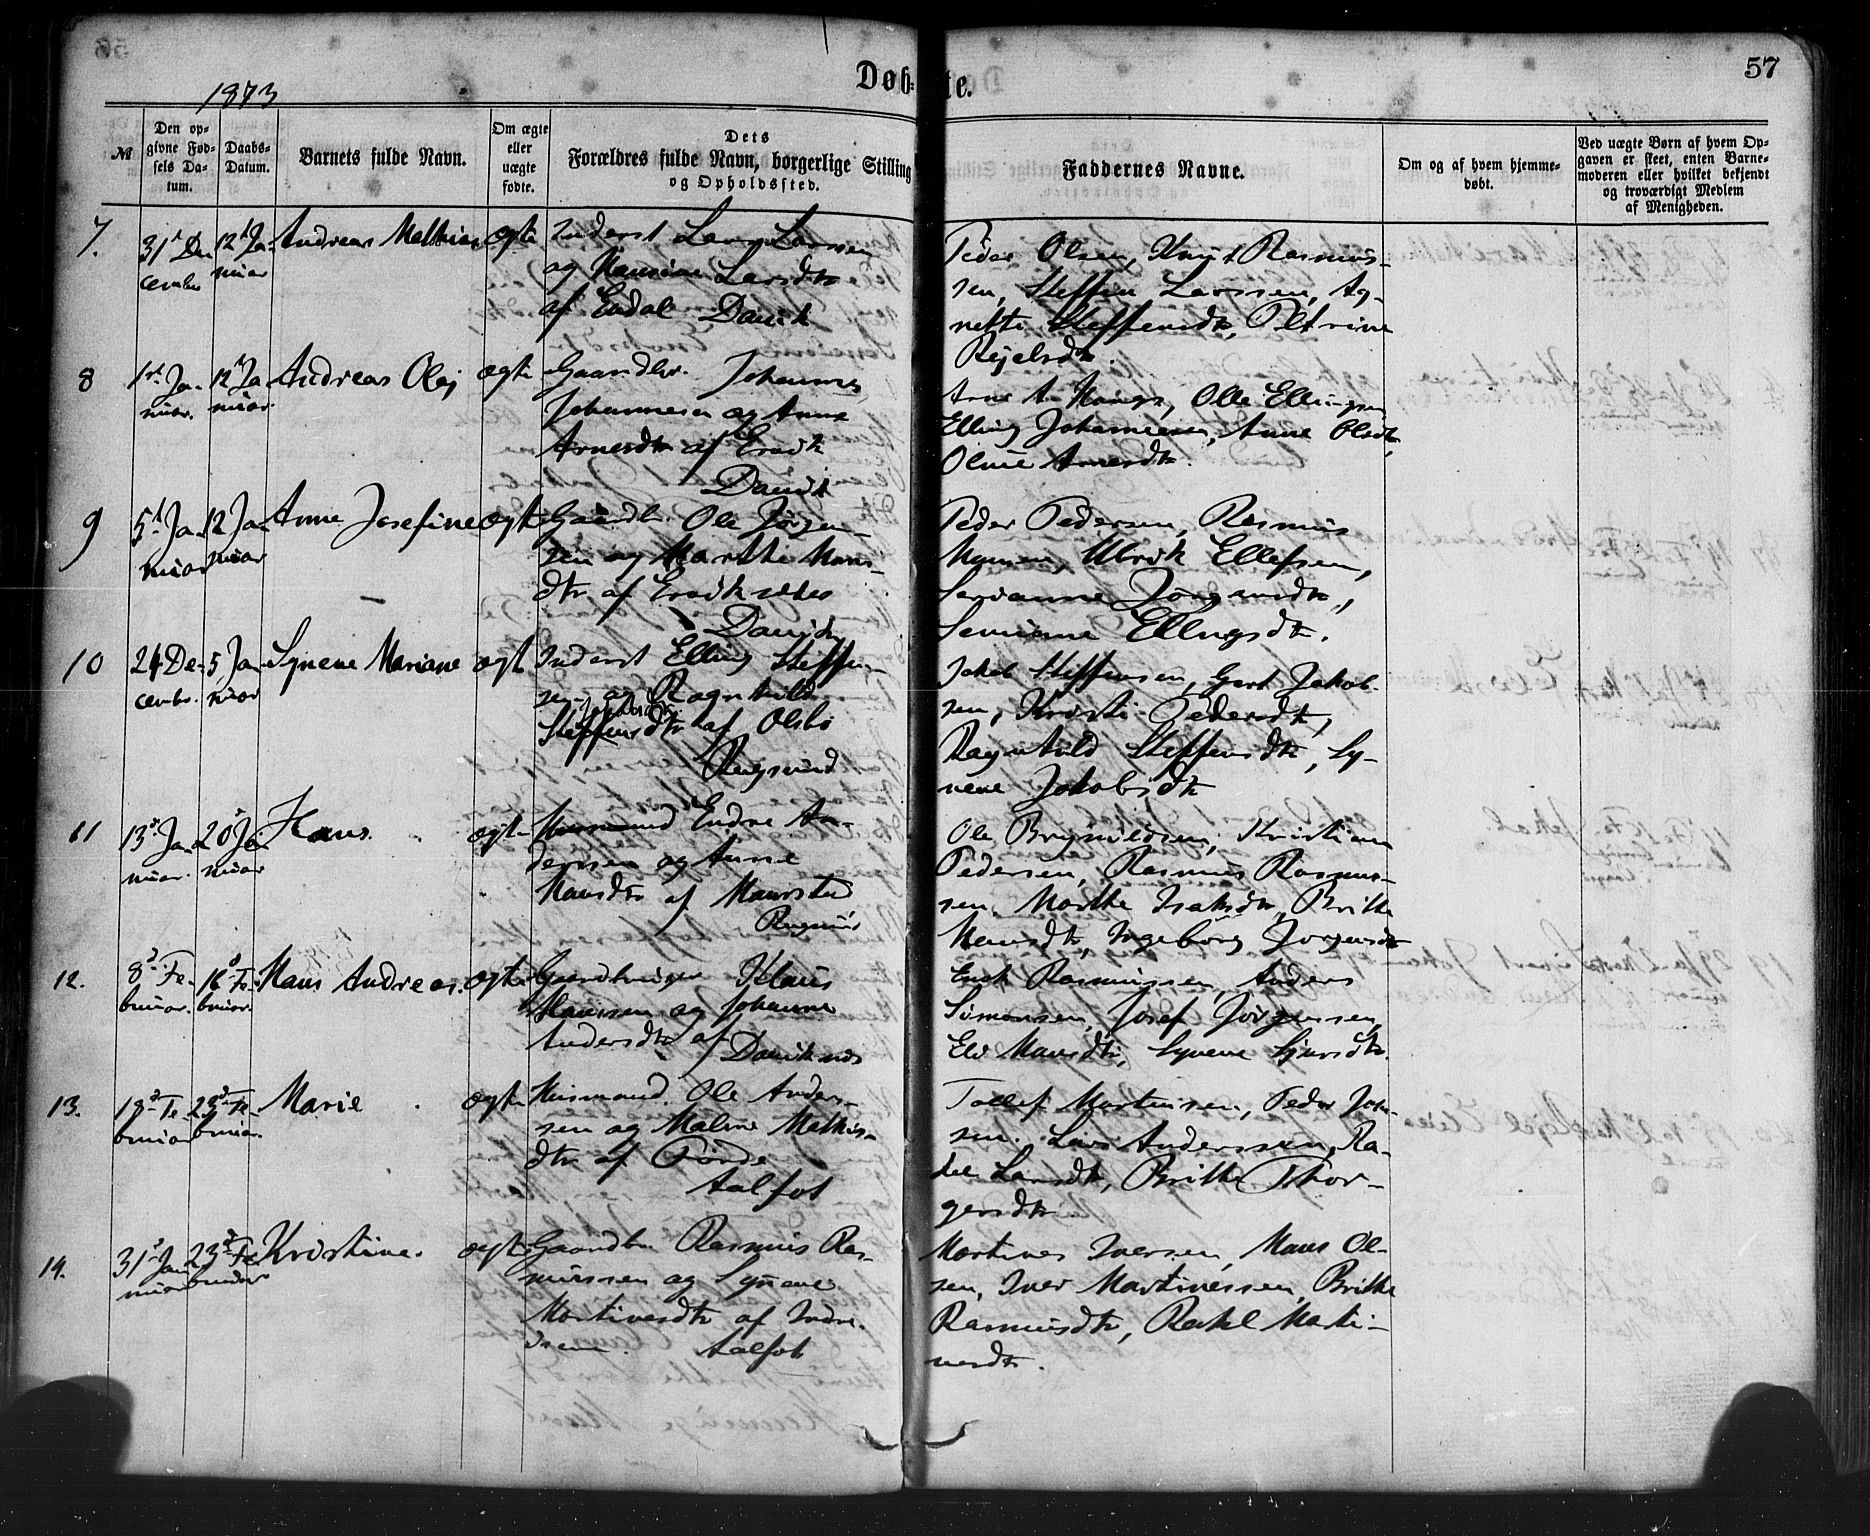 57
Døb-te.
1873
№
Den op-
givne Fød-
sels Da-
tum.
Daabs-
Datum.
Barnets fulde Navn.
Om ægte
eller
uægte
fødte.
Dets
Forældres fulde Navn, borgerlige Stilling
og Opholdssted.
Faddernes Navne.
Om og af hvem hjemme-
døbt.
Ved uægte Børn af hvem Op-
gaven er skeet, enten Barne-
moderen eller hvilket bekjendt
og troværdigt Medlem
af Menigheden.
7.
31 De-
cember
12 Ja-
nuar
Andreas Mathias
ægte
Inderst Lars Larssen
og Hansine Larsdtr
af Endal Davik
Peder Olsen, Knut Rasmus-
sen, Steffen Larssen, Ag-
nette Steffensdtr, Petrine
Rejelsdtr.
8
1st Ja-
nuar.
12 Ja
nuar.
Andreas Olej
ægte
Gaardbr. Johannes
Johannesen og Anne
Arnesdtr af Ervik
Davik
Arne A. Olle Ellingsen
Elling Johannesen, Anne Olsdtr,
Oline Arnesdtr.
9
5 Ja-
nuar
12 Ja-
nuar
Anne Josefine
ægte
Gaardbr. Ole Jørgen-
sen og Marthe Hans-
dtr. af
Davik
Peder Pedersen, Rasmus
Hansen, Ulrik Ellefsen,
Serianne Jørgensdtr,
Ellingsdtr.
10
24 De-
cember.
5 Ja-
nuar
Synneve Mariane
ægte
Inderst Elling Steffen-
sen og Ragnhild
Jakobsdtr.
Steffensdtr af Olsbø
Rugsund
Jakob Steffensen, Gert Jakob-
sen, Kristi Pedersdtr,
Ragnhild Steffensdtr, Sy-
neve Jakobsdtr
11
13 Ja-
nuar.
20 Ja-
nuar
Hans.
ægte
Husmand Endre An-
dersen og Anne
Hansdtr af Maurstad
Rugsund
Ole Brynildsen, Kristian
Pedersen, Rasmus Rasmus-
sen, Marthe Isaksdtr, Brithe
Hansdtr, Ingeborg Jørgensdtr
12.
8 Fe-
bruar.
16 Fe-
bruar.
Hans Andreas.
ægte
Gaardbruger Klaus
Hanssen og Johanne
Andersdtr af
Daviknes
Erik Rasmussen, Anders
Simonsen, Josef Jørgensen,
Eli Hansdtr, Synneve Sjursdtr.
13.
18 Fe-
bruar
23 Fe-
bruar.
Marie
ægte
Husmand. Ole Ander-
sen og Maline Mathis-
dtr af Førde
Aalfot
Tollef Mortensen, Peder John-
sen. Lars Anderssen, Ra-
kel Larsdtr, Brithe Thor-
gersdtr
14.
31 Ja-
nuar
23 Fe-
bruar
Kristine.
ægte
Gaardbr. Rasmus Ras-
mussen og Synneve
Martinesdtr af Indre-
Aalfot
Martines Iversen, Hans Ol-
sen, Iver Martinessen, Brithe
Rasmusdtr, Rakel Marti-
nesdtr.